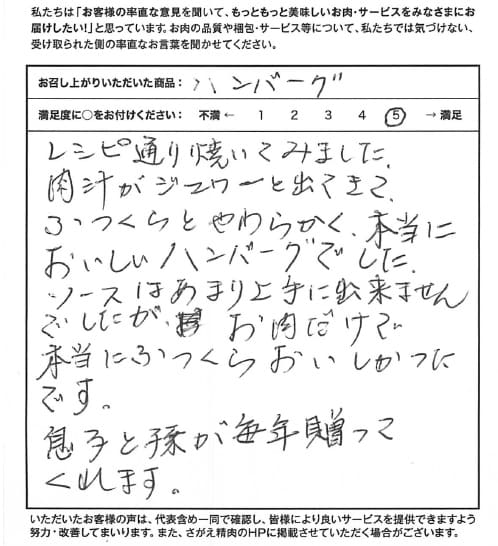 私たちは「お客様の率直な意見を聞いて、もっともっと美味しいお肉・サービスをみなさまにお
届けしたい!」と思っています。お肉の品質や梱包・サービス等について、私たちでは気づけない、
受け取られた側の率直なお言葉を聞かせてください。
お召し上がりいただいた商品: ハンバーグ
満足度に○をお付けください: 不満 ← 1 2 3 4 5 → 満足
レシピ通り焼いてみました、
肉汁がジュワーと出てきて、
ふっくらとやわらかく、本当に
おいしいハンバーグでした、
ソースはあまり上手に出来ません
でしたが、お肉だけで
本当にふっくらおいしかった
です。
息子と孫が毎年贈って
くれます。
いただいたお客様の声は、代表含め一同で確認し、皆様により良いサービスを提供できますよう
努力・改善してまいります。また、さがえ精肉のHPに掲載させていただく場合がございます。